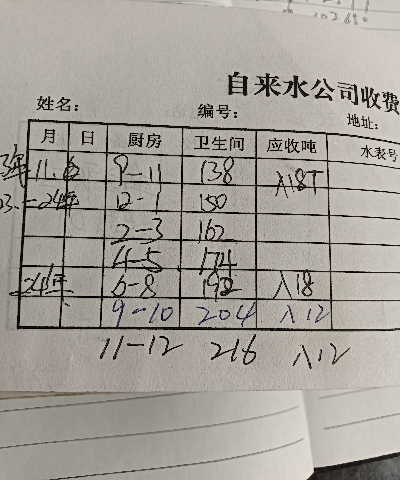 自来水公司收费
姓名： 编号： 地址：
月 日 厨房 卫生间 应收吨 水表号
3年 11.6 9-11 138 入18T
23.-24年 12-1 150
2-3 162
4-5 174
24年 6-8 192 入18
9-10 204 入12
11-12 216 入12